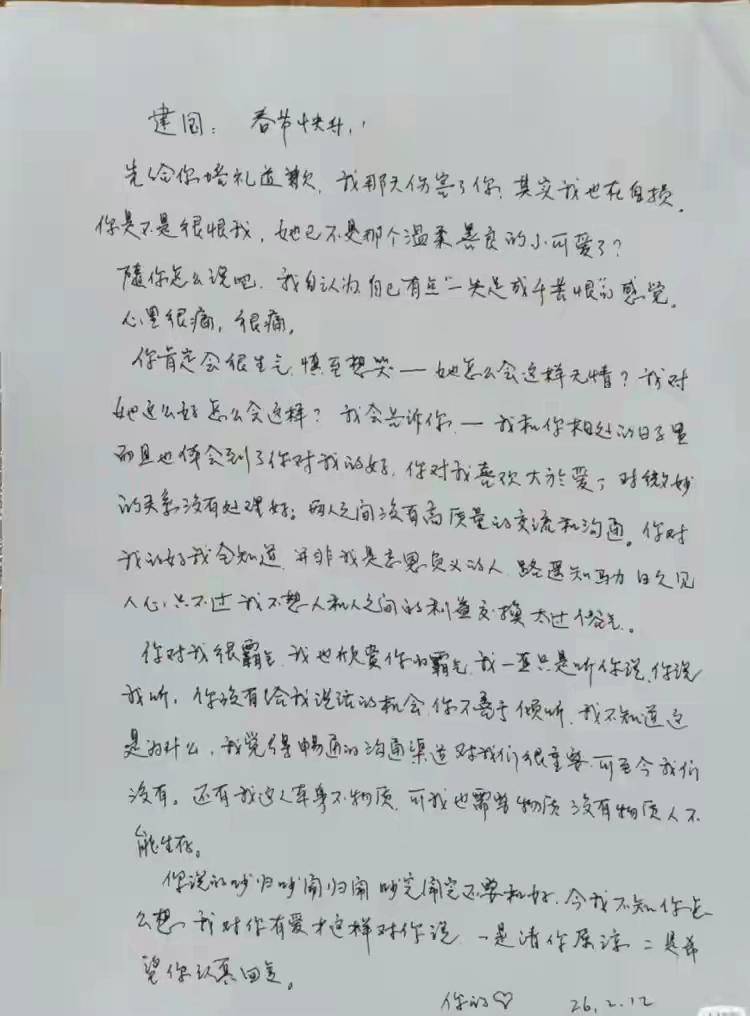 建国：春节快乐！
先给你赔礼道歉，我那天伤害了你，其实我也在自损。
你是不是很恨我，她已不是那个温柔善良的小可爱了？
随你怎么说吧，我自认为自己有点“一失足成千苦恨”的感觉。
心里很痛，很痛。
你肯定会很生气，慎至想哭——她怎么会这样无情？我对
她这么好怎么会这样？我会告诉你，——我和你相处的日子里
而且也体会到了你对我的好，你对我喜欢大於爱，对微妙
的关系没有处理好。两人之间没有高质量的交流和沟通。你对
我的好我全知道，并非我是忘恩负义的人，路遥知马力日久见
人心，只不过我不想人和人之间的利益交换太过俗气。
你对我很霸气，我也欣赏你的霸气，我一直只是听你说、你说
我听，你没有给我说话的机会，你不善于倾听，我不知道这
是为什么，我觉得畅通的沟通渠道对我们很重要，可至今我们
没有。还有我这人本身不物质，可我也需要物质，没有物质人不
能生存。
你说的吵归吵闹归闹吵完闹完还要和好，今我不知你怎
么想，我对你有爱才这样对你说，一是请你原谅，二是希
望你认真回复。
你的♡ 26.2.12